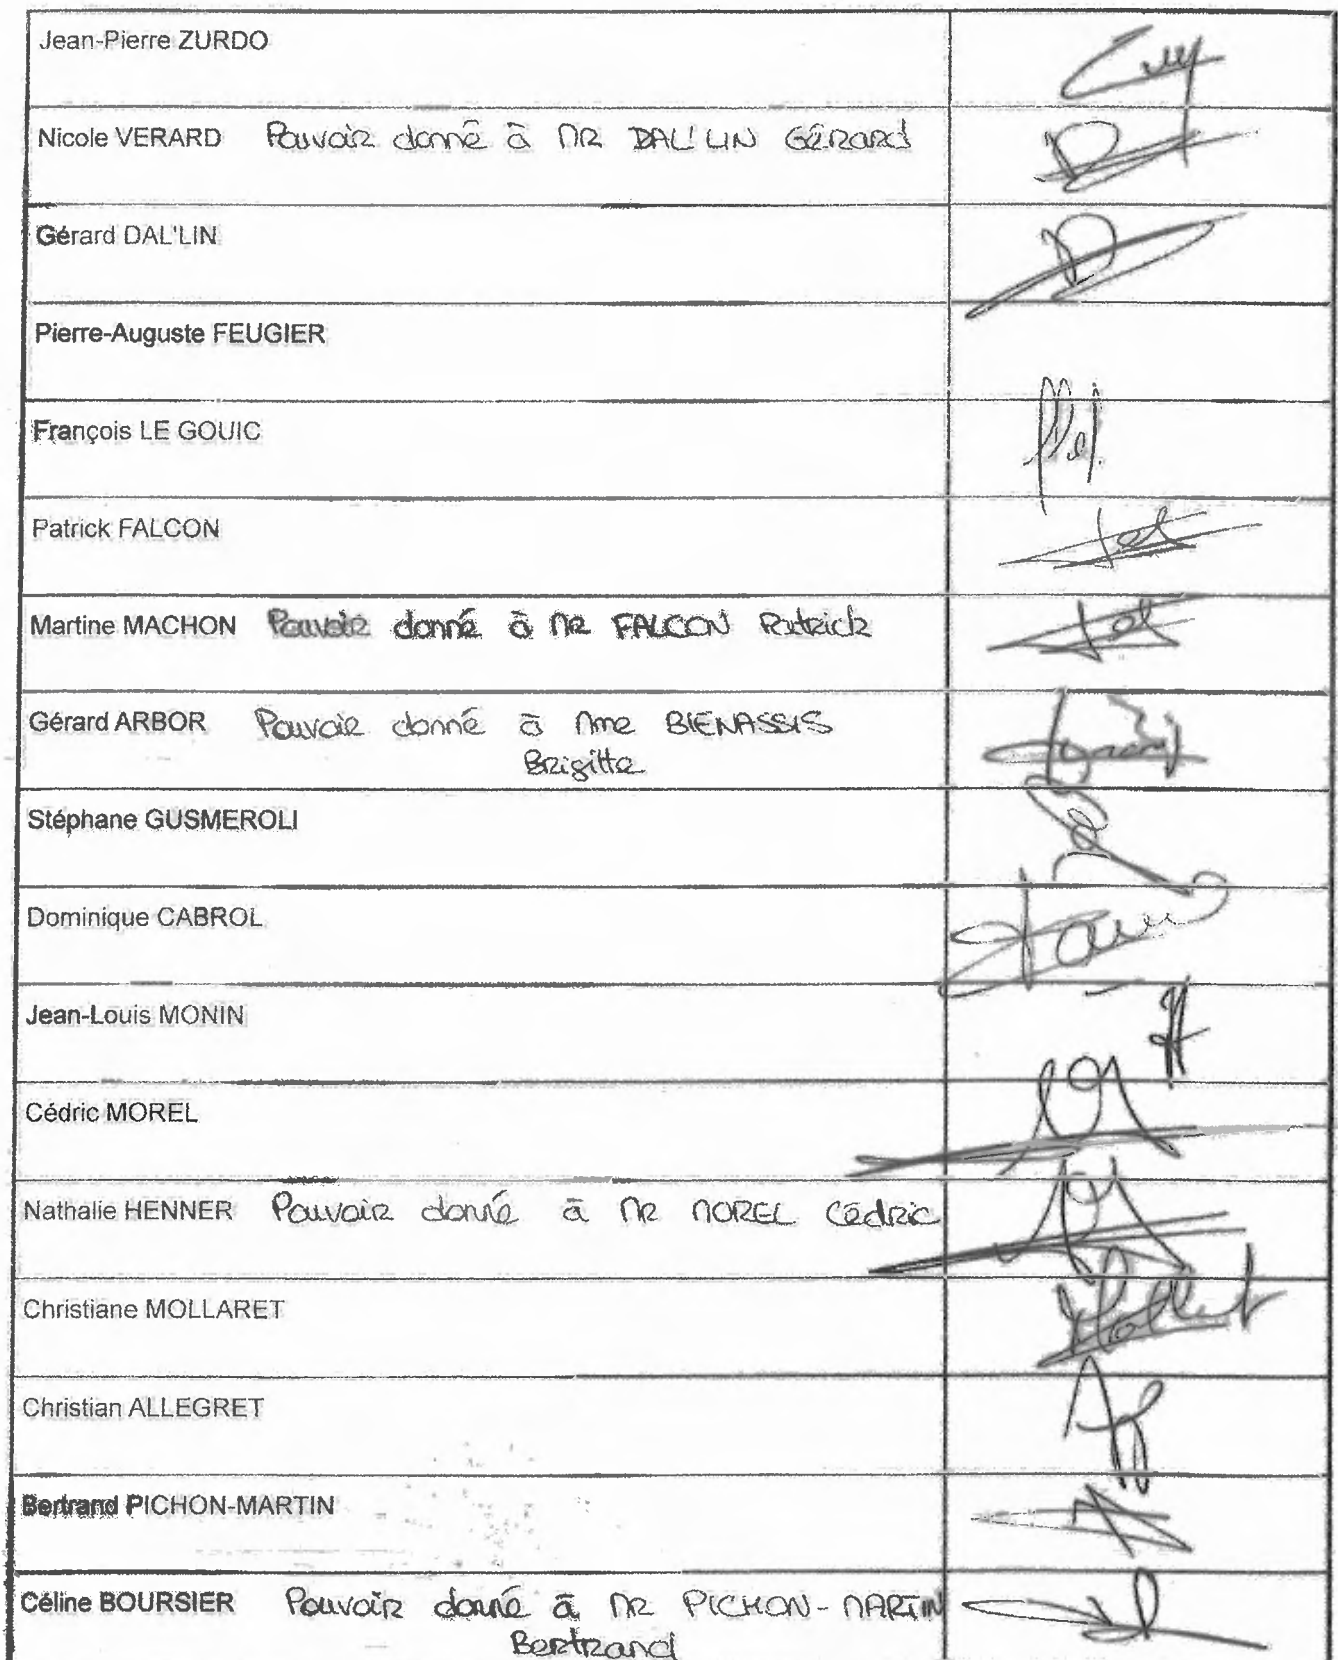 Jean-Pierre ZURDO
Nicole VERARD Pouvoir donné à MR DAL'LIN Gérard
Gérard DAL'LIN
Pierre-Auguste FEUGIER
François LE GOUIC
Patrick FALCON
Martine MACHON Pouvoir donné à MR FALCON Patrick
Gérard ARBOR Pouvoir donné à Mme BIENASSIS
Brigitte
Stéphane GUSMEROLI
Dominique CABROL
Jean-Louis MONIN
Cédric MOREL
Nathalie HENNER Pouvoir donné à MR MOREL Cédric
Christiane MOLLARET
Christian ALLEGRET
Bertrand PICHON-MARTIN
Céline BOURSIER Pouvoir donné à MR PICHON-MARTIN
Bertrand